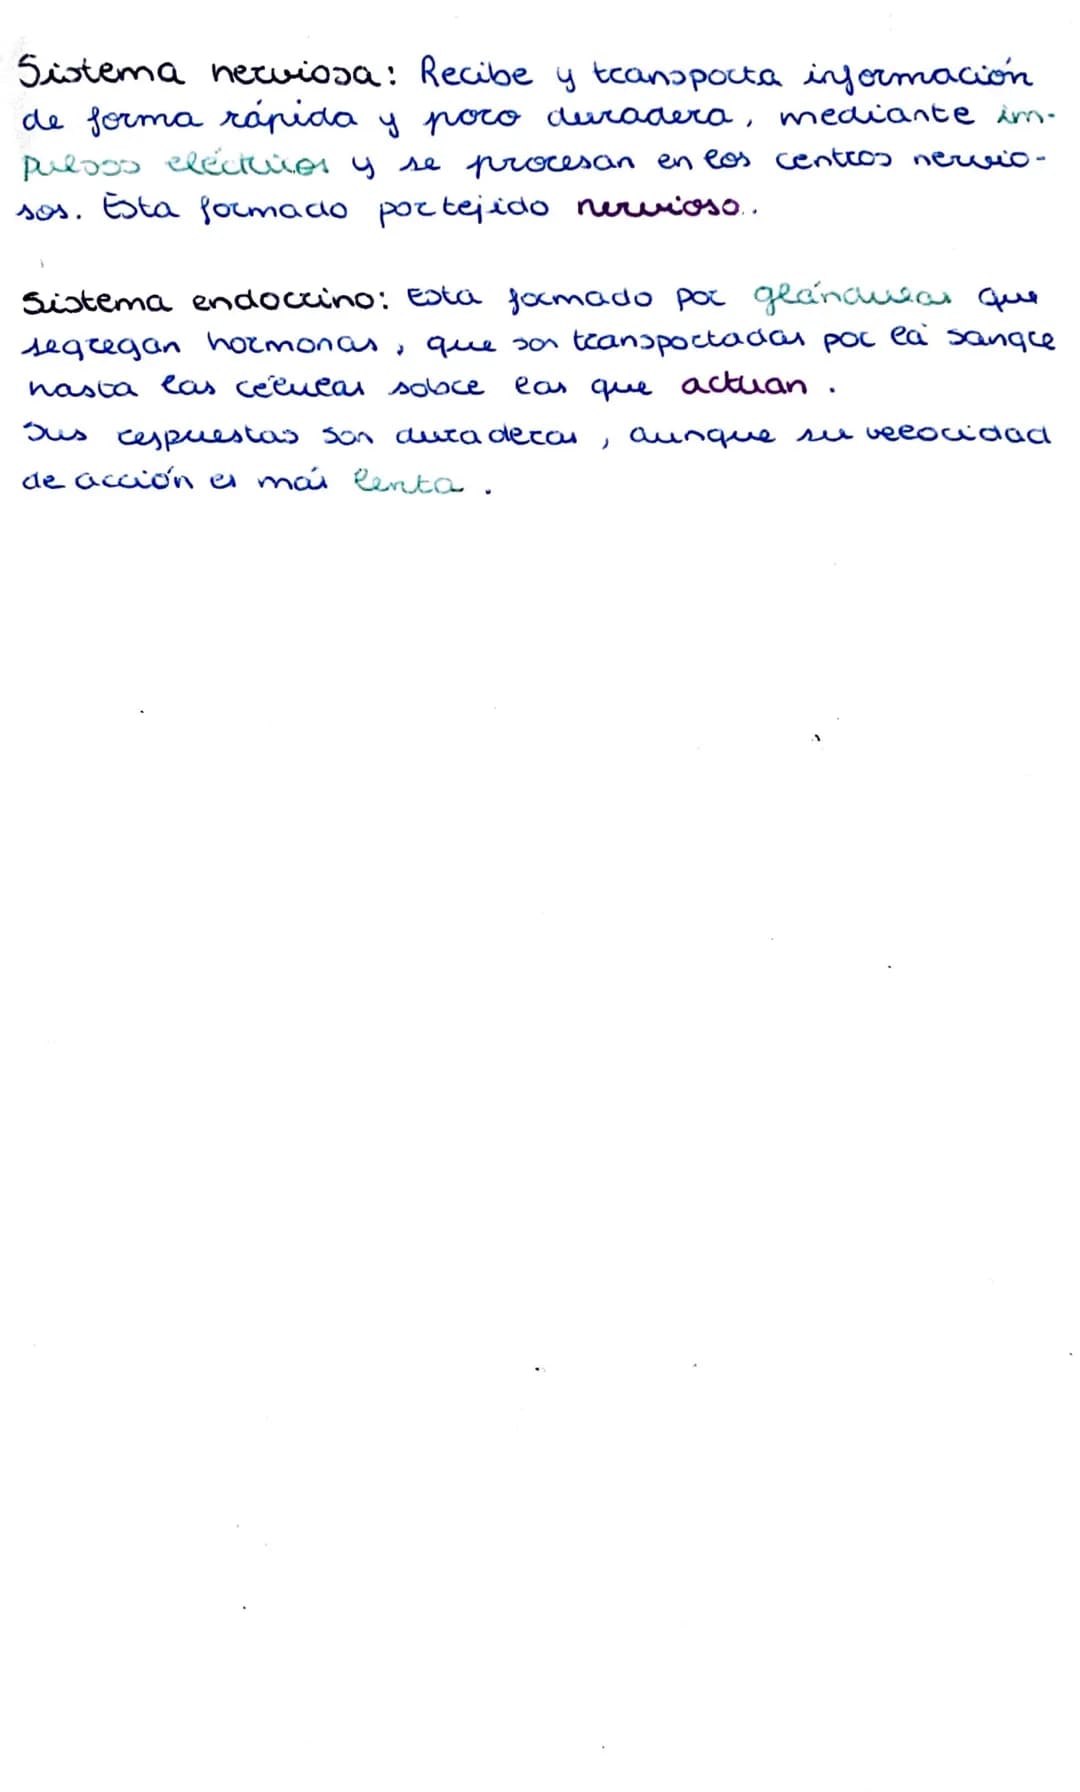 Sistema nerviosa: Recibe y transporta información
de forma rápida y poco duradera, mediante im-
pulsos eléctricos y se procesan en los centros nervio-
sos. Esta formado por tejido nervioso..
Sistema endocrino: Esta formado por glándulas que
segregan hormonas, que son transportadas por la sangre
hasta las células sobre las que actuan.
Sus respuestas son duraderas, aunque su velocidad
de acción es más lenta.